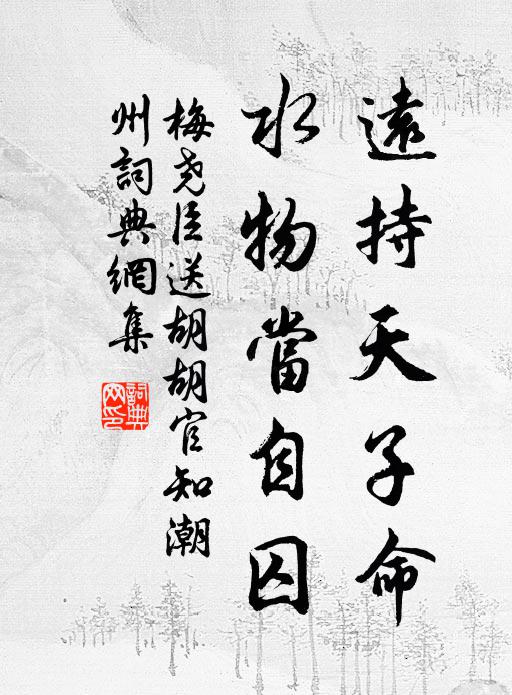 遠持天子命
水物當自囚
梅尧臣送胡胡官知潮
州詞典網集
詞典
网印